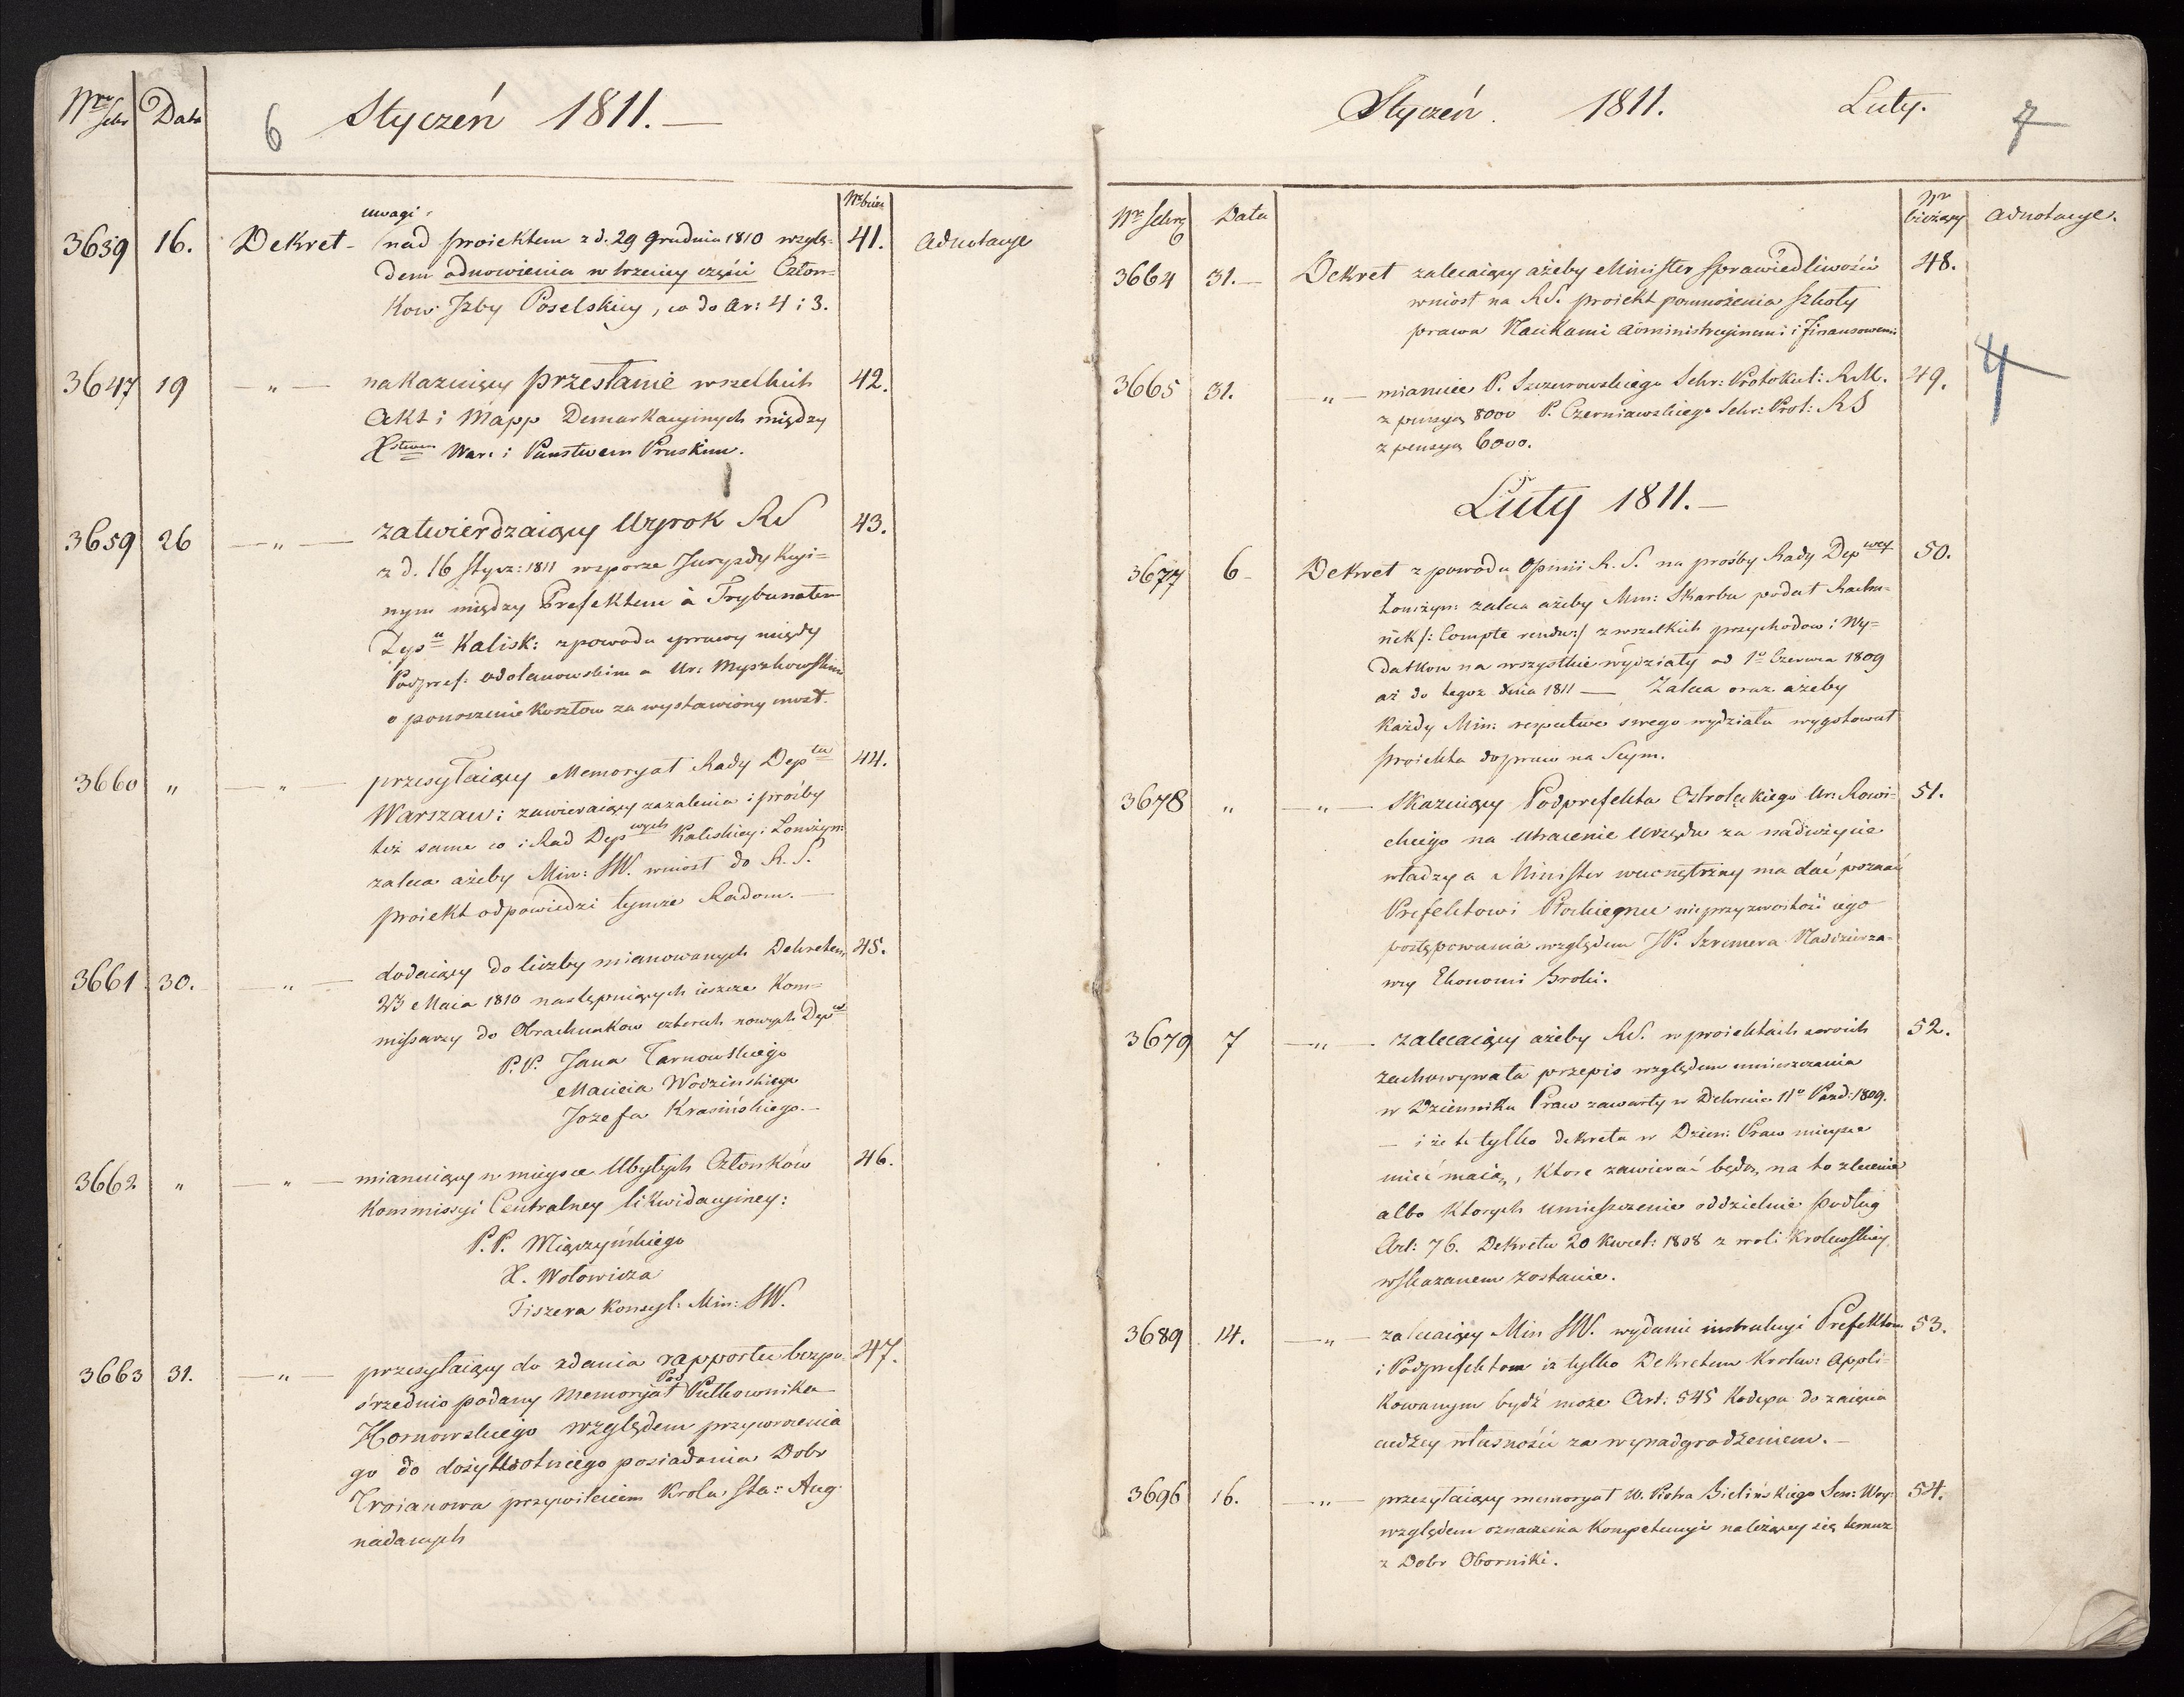 Nro Sekr Data
6 Styczeń 1811. —
Nr bież
uwagi
3639 16. Dekret - nad proiektem z d. 29 Grudnia 1810 wzglę= 41. Adnotacye
dem odnowienia w trzeciey części Człon=
kow Jzby Poselskiey, co do Ar: 4 i 3.
3647 19 — " — nakazuiący przesłanie wszelkich 42.
Akt i Mapp Demarkacyinych między
Xstwem War: i Państwem Pruskim.
3659 26 — " — zatwierdzaiący Wyrok RS 43.
z d. 16 Stycz: 1811 wsporze Juryzdykcyi=
nym między Prefektem a Trybunałem
Kalisk: zpowodu sprawy między
Podpref: Odolanowskim a Ur: Myszkowskim
o ponoszenie kosztow za wystawiony most.
3660 " — " — przesyłaiący Memoryał Rady Dep 44.
Warszaw: zawieraiący zażalenia i prośby
też same co i Rad Depwych Kaliskiey i Łomżyn:
zaleca ażeby Min: SW. wniosł do R. S.
proiekt odpowiedzi tymże Radom. —
3661 30. — " — dodaiący do liczby mianowanych Dekretem 45.
23 Maia 1810 następuiących ieszcze Kom=
missarzy do Obrachunkow czterech nowych Dep
P.P. Jana Tarnowskiego
Macieia Wodzinskiego
Jozefa Krasińskiego. —
3662 " — " — mianuiący w mieysce Ubyłych Członków 46.
Kommissyi Centralney likwidacyiney:
P.P. Miączyńskiego
X. Wołowicza
Fiszera Konsyl: Min: SW.
3663 31. — " — przesyłaiący do zdania rapportu bezpo- 47.
średnio podany Memoryał Pod Pułkownika
Hornowskiego względem przywrocenia
go do dożywotniego posiadania Dobr
Troianowa przywileiem Krola Sta: Aug:
nadanych
Styczeń. 1811. Luty. 7
Nr Sekre Data Nr bieżący Adnotacye.
3664 31. — Dekret zalecaiący ażeby Minister Sprawiedliwości 48.
wniosł na RS. proiekt pomnożenia Szkoły
prawa Naukami Administracyinemi i Finansowemi
4
3665 31. " — mianuie P. Szczurowskiego Sekr: Protokuł: RM. 49.
z pensyą 8000 P. Czerniawskiego Sekr: Prot: RS
z pensyą 6000.
Luty 1811. —
3677 6 - Dekret z powodu Opinii R. S. na prośby Rady Depwey 50.
Łomżyn: zaleca ażeby Min: Skarbu podał Rachu=
nek /: Compte rendu :/ z wszelkich przychodow i Wy=
datkow na wszystkie wydziały od 1o Czerwca 1809
aż do tegoż dnia 1811 — Zaleca oraz ażeby
każdy Min: respective swego wydziału wygotował
proiekta do praw na Seym.
3678 " — " — Skazuiący Podprefekta Ostrołęckiego Ur. Rowi=
51.
ckiego na utracenie Urzędu za nadużycie
władzy a Minister wewnętrzny ma dać poznać
Prefektowi Płockiemu nieprzyzwoitość iego
postępowania względem JP. Szremera Nadzierza=
wcy Ekonomi Broku.
3679 7 — " — zalecaiący ażeby RS. w proiektach swoich 52.
zachowywała przepis względem umieszczania
w Dzienniku Praw zawarty w Dekrecie 11o Pazd: 1809.
— i że te tylko dekreta w Dzien: Praw mieysce
mieć maią, ktore zawierać będą, na to zlecenie
albo ktorych umieszczenie oddzielnie podług
Art: 76. Dekretu 20 Kwiet: 1808 z woli Krolewskiey
wskazanem zostanie.
3689 14. — " — zalecaiący Min SW. wydanie instrukcyi Prefektom 53.
i Podprefektom iż tylko Dekretem Krolew: Appli=
kowanym bydź może Art: 545 Kodexu do zaięcia
cudzey własności za wynadgrodzeniem. —
3696 16. — " — przesyłaiący memoryał W. Piotra Bielińskiego Sen: Woy: 54.
względem oznaczenia Kompetencyi należącey się temuż
z Dobr Oborniki.